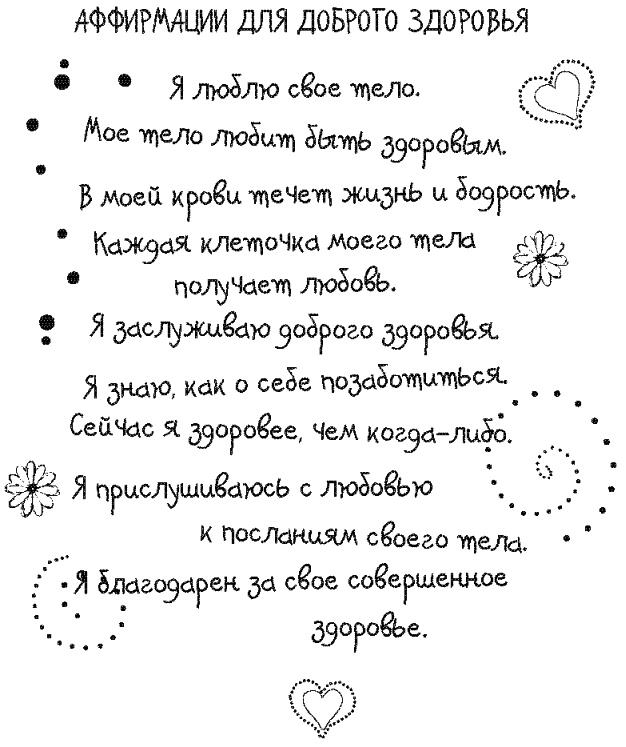 АФФИРМАЦИИ ДЛЯ ДОБРОГО ЗДОРОВЬЯ
Я люблю свое тело.
Мое тело любит быть здоровым.
В моей крови течет жизнь и бодрость.
Каждая клеточка моего тела
получает любовь.
Я заслуживаю доброго здоровья.
Я знаю, как о себе позаботиться.
Сейчас я здоровее, чем когда-либо.
Я прислушиваюсь с любовью
к посланиям своего тела.
Я благодарен за свое совершенное
здоровье.